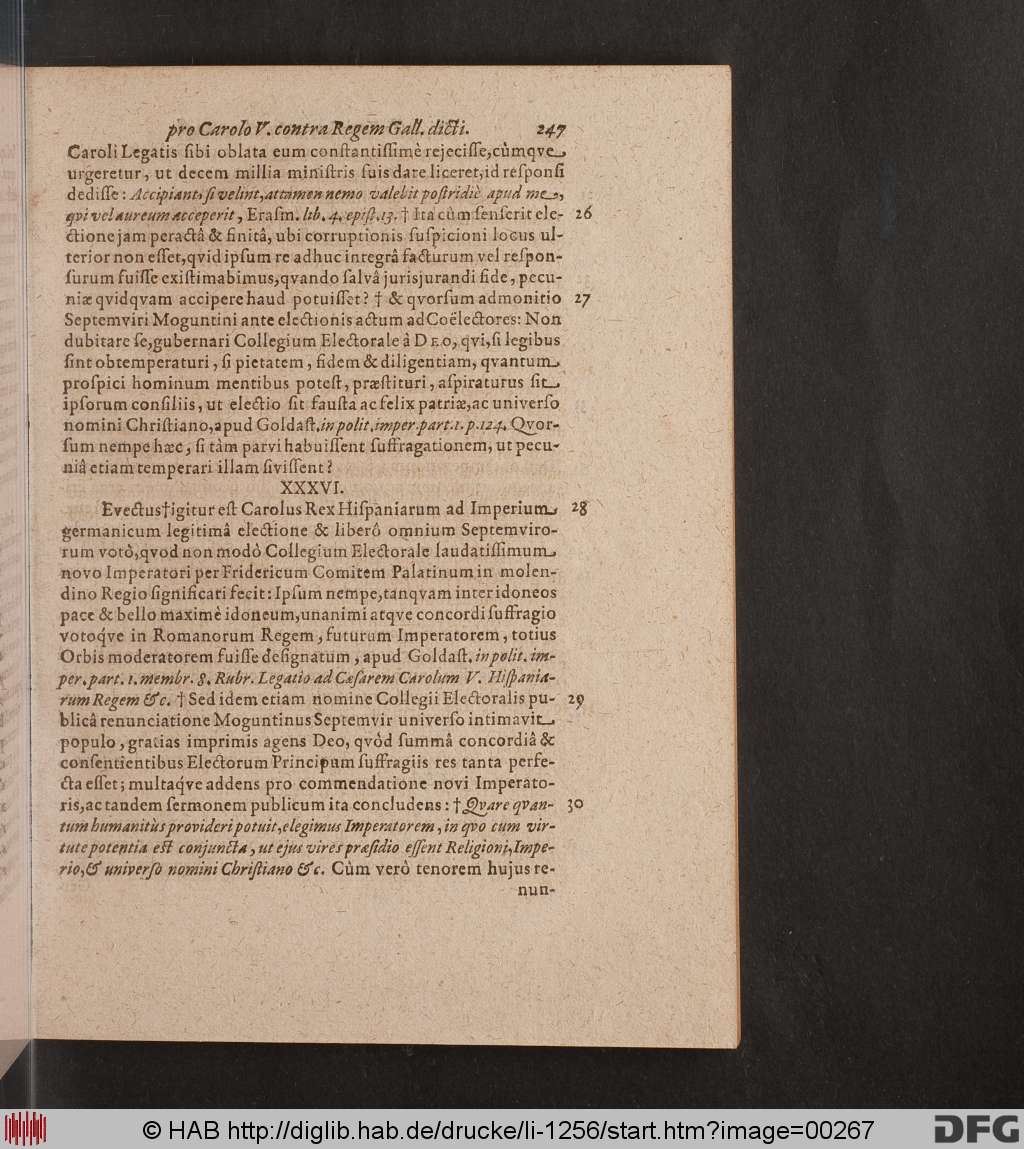 pro Carolo V. contra Regem Gall. dicti. 247
Caroli Legatis ſibi oblata eum conſtantiſſimè rejeciſſe, cùmqve
urgeretur, ut decem millia miniſtris ſuis dare liceret, id reſponſi
dediſſe: Accipiant, ſi velint, attamen nemo valebit poſtridiè apud me,
qvi vel aureum acceperit, Eraſm. lib. 4. epiſt. 13. † Ita cùm ſenſerit ele- 26
ctione jam peractâ & finitâ, ubi corruptionis ſuſpicioni locus ul-
terior non eſſet, qvid ipſum re adhuc integrâ facturum vel reſpon-
ſurum fuiſſe exiſtimabimus, qvando ſalvâ jurisjurandi fide, pecu-
niæ qvidqvam accipere haud potuiſſet? † & qvorſum admonitio 27
Septemviri Moguntini ante electionis actum ad Coëlectores: Non
dubitare ſe, gubernari Collegium Electorale â DEO, qvi, ſi legibus
ſint obtemperaturi, ſi pietatem, fidem & diligentiam, qvantum
proſpici hominum mentibus poteſt, præſtituri, aſpiraturus ſit
ipſorum conſiliis, ut electio ſit fauſta ac felix patriæ, ac univerſo
nomini Chriſtiano, apud Goldaſt. in polit. imper. part. 1. p. 124. Qvor-
ſum nempe hæc, ſi tàm parvi habuiſſent ſuffragationem, ut pecu-
niâ etiam temperari illam ſiviſſent?
XXXVI.
Evectus † igitur eſt Carolus Rex Hiſpaniarum ad Imperium 28
germanicum legitimâ electione & liberô omnium Septemviro-
rum votô, qvod non modò Collegium Electorale laudatiſſimum
novo Imperatori per Fridericum Comitem Palatinum in molen-
dino Regio ſignificati fecit: Ipſum nempe, tanqvam inter idoneos
pace & bello maximè idoneum, unanimi atqve concordi ſuffragio
votoqve in Romanorum Regem, futurum Imperatorem, totius
Orbis moderatorem fuiſſe deſignatum, apud Goldaſt. in polit. im-
per. part. 1. membr. 8. Rubr. Legatio ad Cæſarem Carolum V. Hiſpania-
rum Regem &c. † Sed idem etiam nomine Collegii Electoralis pu- 29
blicâ renunciatione Moguntinus Septemvir univerſo intimavit
populo, gratias imprimis agens Deo, qvòd ſummâ concordiâ &
conſentientibus Electorum Principum ſuffragiis res tanta perfe-
cta eſſet; multaqve addens pro commendatione novi Imperato-
ris, ac tandem ſermonem publicum ita concludens: † Qvare qvan- 30
tum humanitùs provideri potuit, elegimus Imperatorem, in qvo cum vir-
tute potentia eſt conjuncta, ut ejus vires præſidio eſſent Religioni, Impe-
rio, & univerſo nomini Chriſtiano &c. Cùm verò tenorem hujus re-
nun-
© HAB http://diglib.hab.de/drucke/li-1256/start.htm?image=00267
DFG